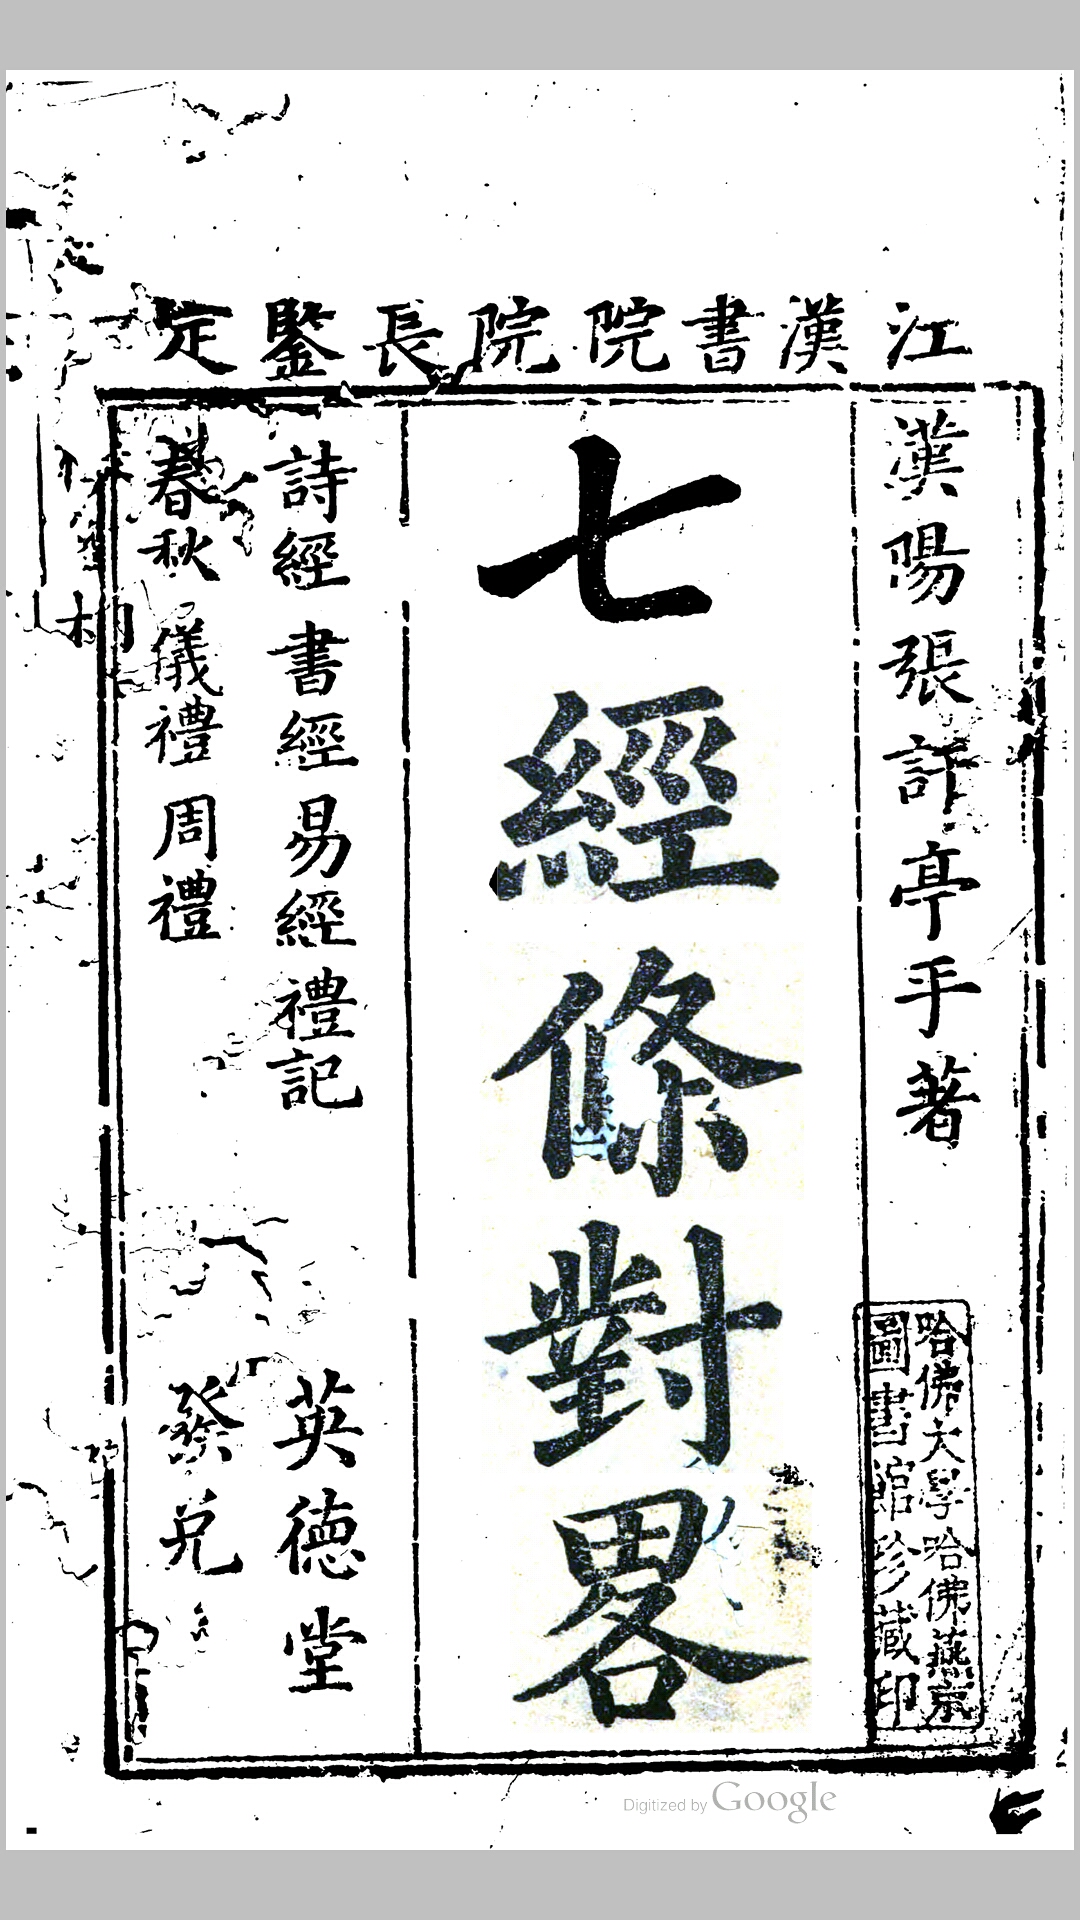 江漢書院院長鍳定
漢陽張訂亭手著
七經條對畧
詩經書經易經禮記
春秋儀禮周禮
英德堂
發兌
哈佛大學哈佛燕京
圖書館珍藏印
Digitized by Google